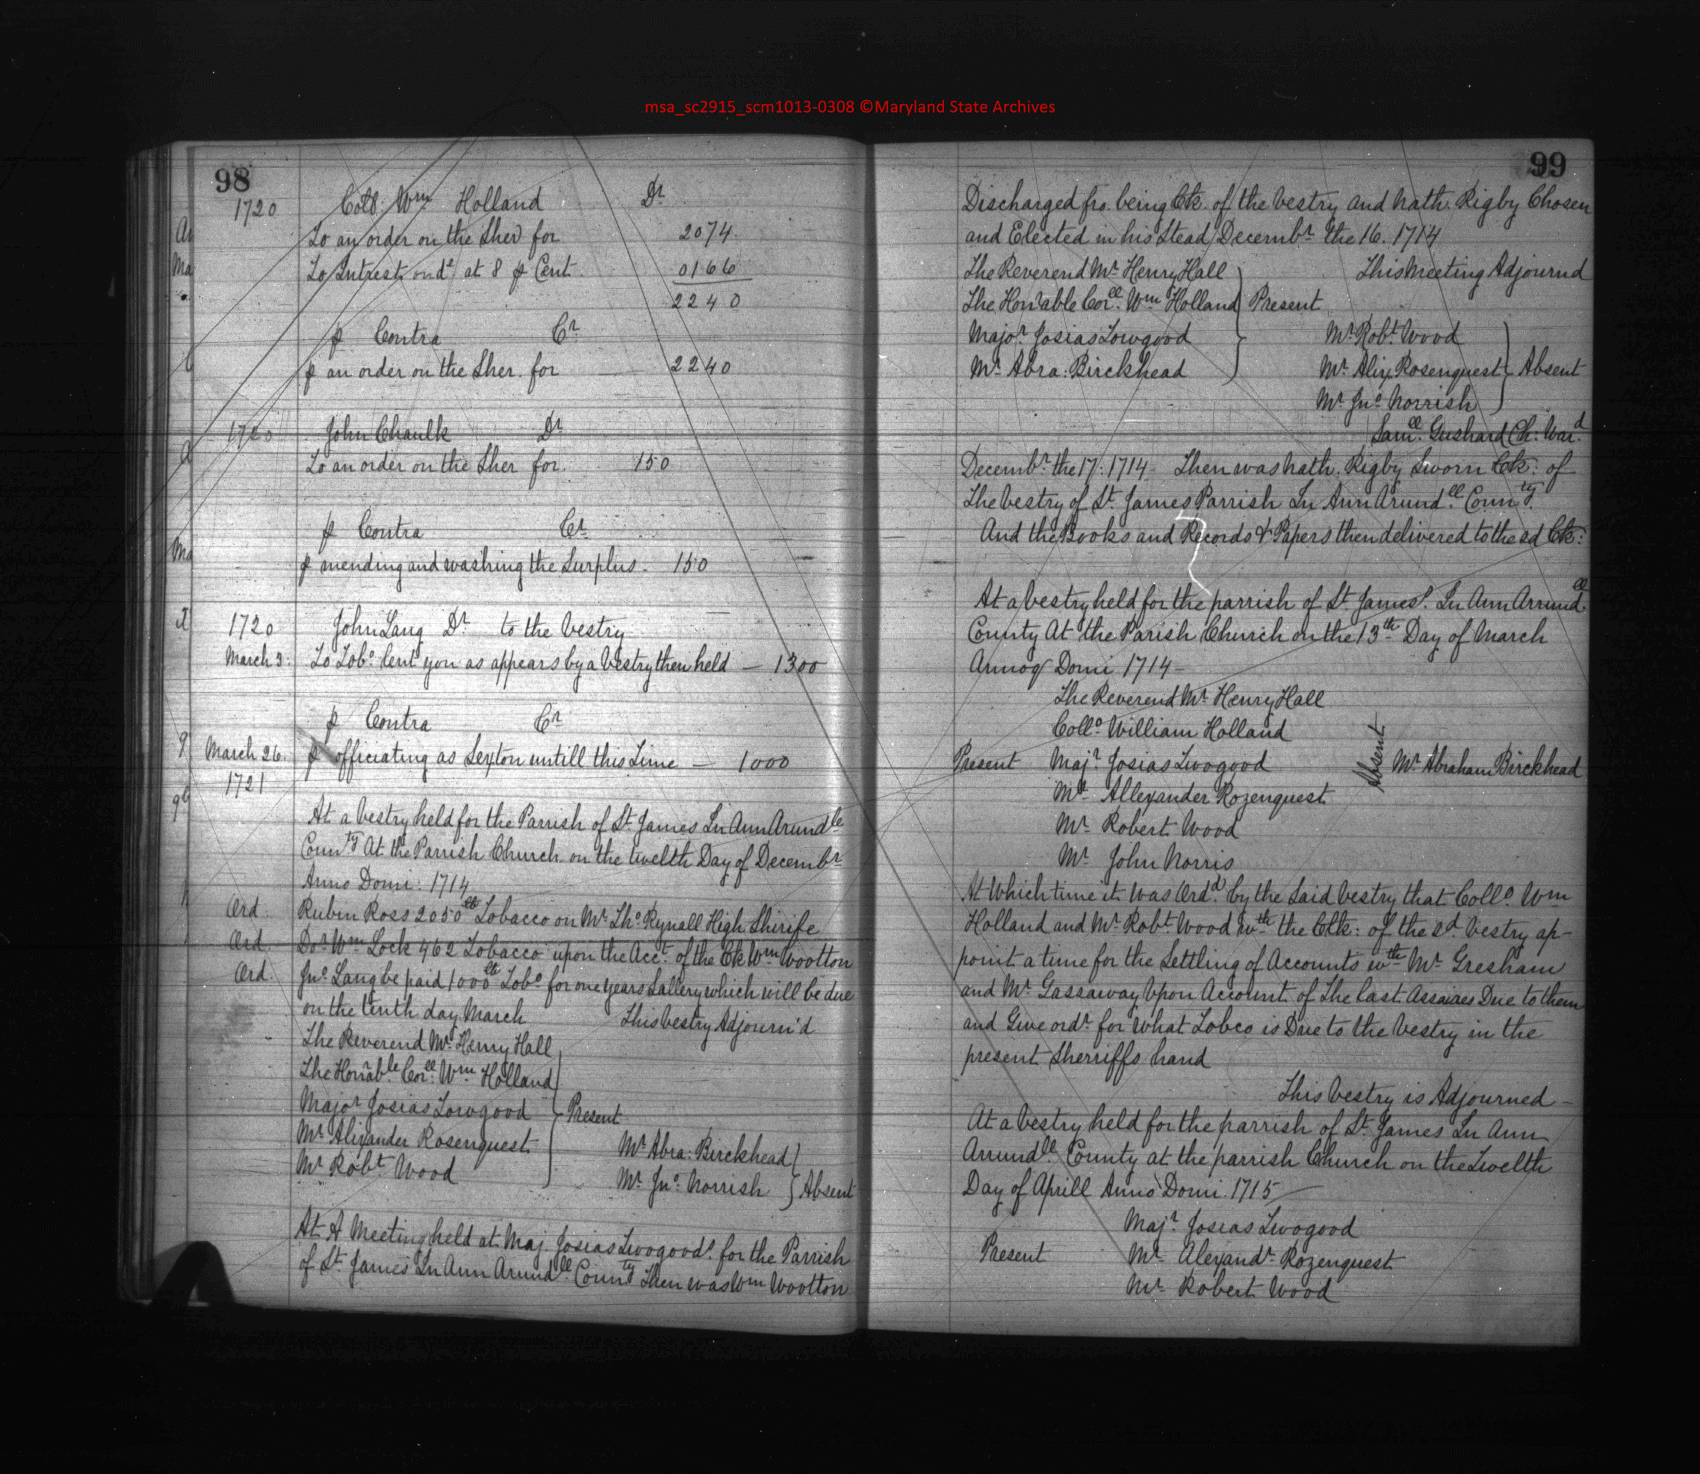 msa_sc2915_scm1013-0308 ©Maryland State Archives
98
1720 Coll. Wm Holland Dr
To an order on the Sher for 2074
To Intrest on do at 8 p Cent. 0166
2240
p Contra Cr
p an order on the Sher. for 2240
1720 John Chaulk Dr
To an order on the Sher for. 150
p Contra Cr
p mending and washing the Surplus. 150
1720 John Lang Dr to the Vestry
March 3. To Tobo lent you as appears by a Vestry then held — 1300
p Contra Cr
March 26. p officiating as Sexton untill this Time — 1000
1721
At a Vestry held for the Parrish of St James In Ann Arundle
County At the Parrish Church on the twelth Day of Decembr
Anno Domi: 1714
Ord. Rubin Ross 2050lb Tobacco on Mr Tho Rynall High Shirife
Ord. Do Wm Lock 462 Tobacco upon the Acct. of the Ck Wm Wootton
Ord. Jno Lang be paid 1000lb Tobo for one years Sallery which will be due
on the tenth day March This Vestry Adjourn'd
The Reverend Mr Henry Hall
The Honrable Coll. Wm Holland
Major Josias Towgood } Present
Mr Alixander Rosenquest
Mr Robt Wood
Mr Abra: Birckhead
Mr Jno Norrish } Absent
At A Meeting held at Maj. Josias Twogoods for the Parrish
of St James In Ann Arundll County Then was Wm Wootton
99
Discharged fro. being Ck. of the Vestry and Nath. Rigby Chosen
and Elected in his Stead Decembr the 16. 1714
The Reverend Mr Henry Hall This Meeting Adjournd
The Honrable Coll. Wm Holland } Present
Major Josias Towgood Mr Robt Wood
Mr Abra: Birckhead Mr Alix Rosenquest } Absent
Mr Jno Norrish
Samll Gushard Ch: Ward
Decembr the 17: 1714 Then was Nath. Rigby Sworn Ck: of
The Vestry of St James Parrish In Ann Arundll County.
And the Books and Records & Papers then delivered to the sd Ck:
At a Vestry held for the parrish of St James. In Ann Arrundll
County At the Parish Church on the 13th Day of March
Annoq Domi 1714
The Reverend Mr Henry Hall
Collo William Holland
Present Majr Josias Twogood Absent Mr Abraham Birckhead
Mr Allexander Rozenquest
Mr Robert Wood
Mr John Norris
At Which time it was Ordd. by the Said Vestry that Collo Wm
Holland and Mr Robt Wood wth the Clk: of the sd. Vestry ap-
point a time for the Settling of Accounts wth Mr Gresham
and Mr Gassaway Upon Account of The last Assaices Due to them
and Give ordr for what Tobco is Due to the Vestry in the
present Sherriffs hand
This Vestry is Adjourned —
At a Vestry held for the parrish of St James In Ann
Arrundll County at the parrish Church on the Twelth
Day of Aprill Anno Domi. 1715
Majr Josias Twogood
Present Mr Alexandr Rozenquest
Mr Robert Wood